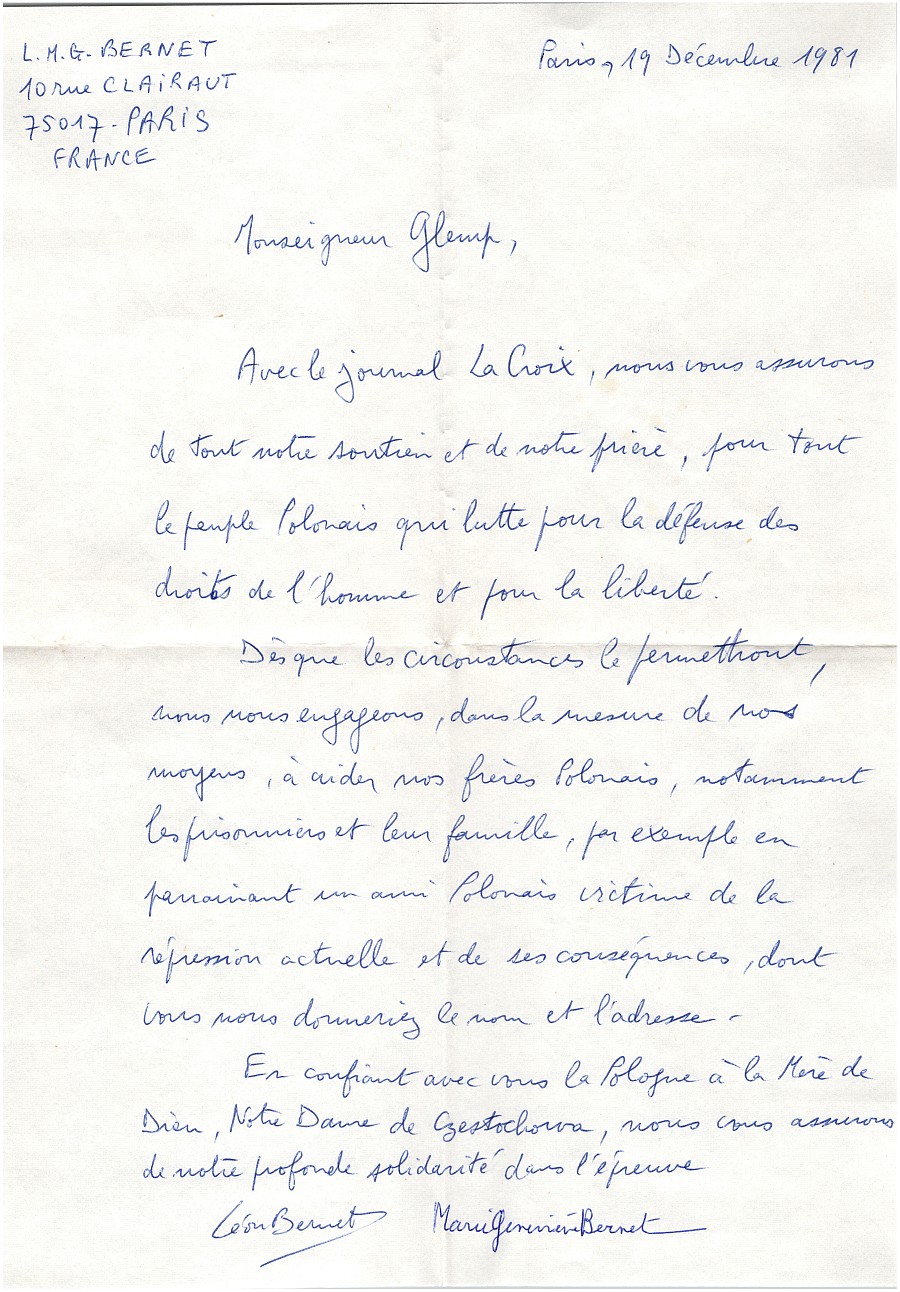 L.M.G. BERNET
10 rue CLAIRAUT
75017 - PARIS
FRANCE
Paris, 19 Décembre 1981
Monseigneur Glemp,
Avec le journal La Croix, nous vous assurons
de tout notre soutien et de notre prière, pour tout
le peuple Polonais qui lutte pour la défense des
droits de l'homme et pour la liberté.
Dès que les circonstances le permettront,
nous nous engageons, dans la mesure de nos
moyens, à aider nos frères Polonais, notamment
les prisonniers et leur famille, par exemple en
parrainant un ami Polonais victime de la
répression actuelle et de ses conséquences, dont
vous nous donneriez le nom et l'adresse -
En confiant avec vous la Pologne à la Mère de
Dieu, Notre Dame de Czestochowa, nous vous assurons
de notre profonde solidarité dans l'épreuve
Léon Bernet Marie Geneviève Bernet